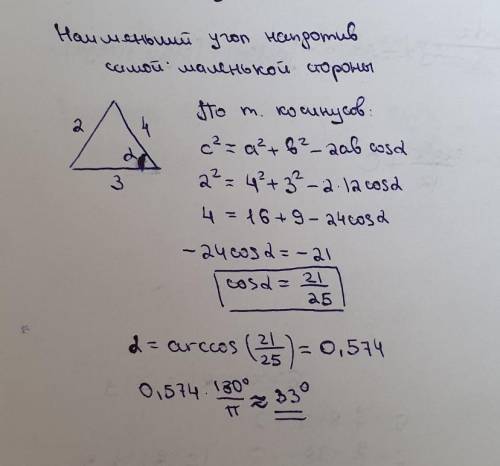 Наименьший угол напротив
самой маленькой стороны
По т. косинусов:
2 4
α
3
c² = a² + b² - 2ab cosα
2² = 4² + 3² - 2·12cosα
4 = 16 + 9 - 24cosα
-24cosα = -21
cosα = 21/25
α = arccos(21/25) = 0,574
0,574 · 180°/π ≈ 33°